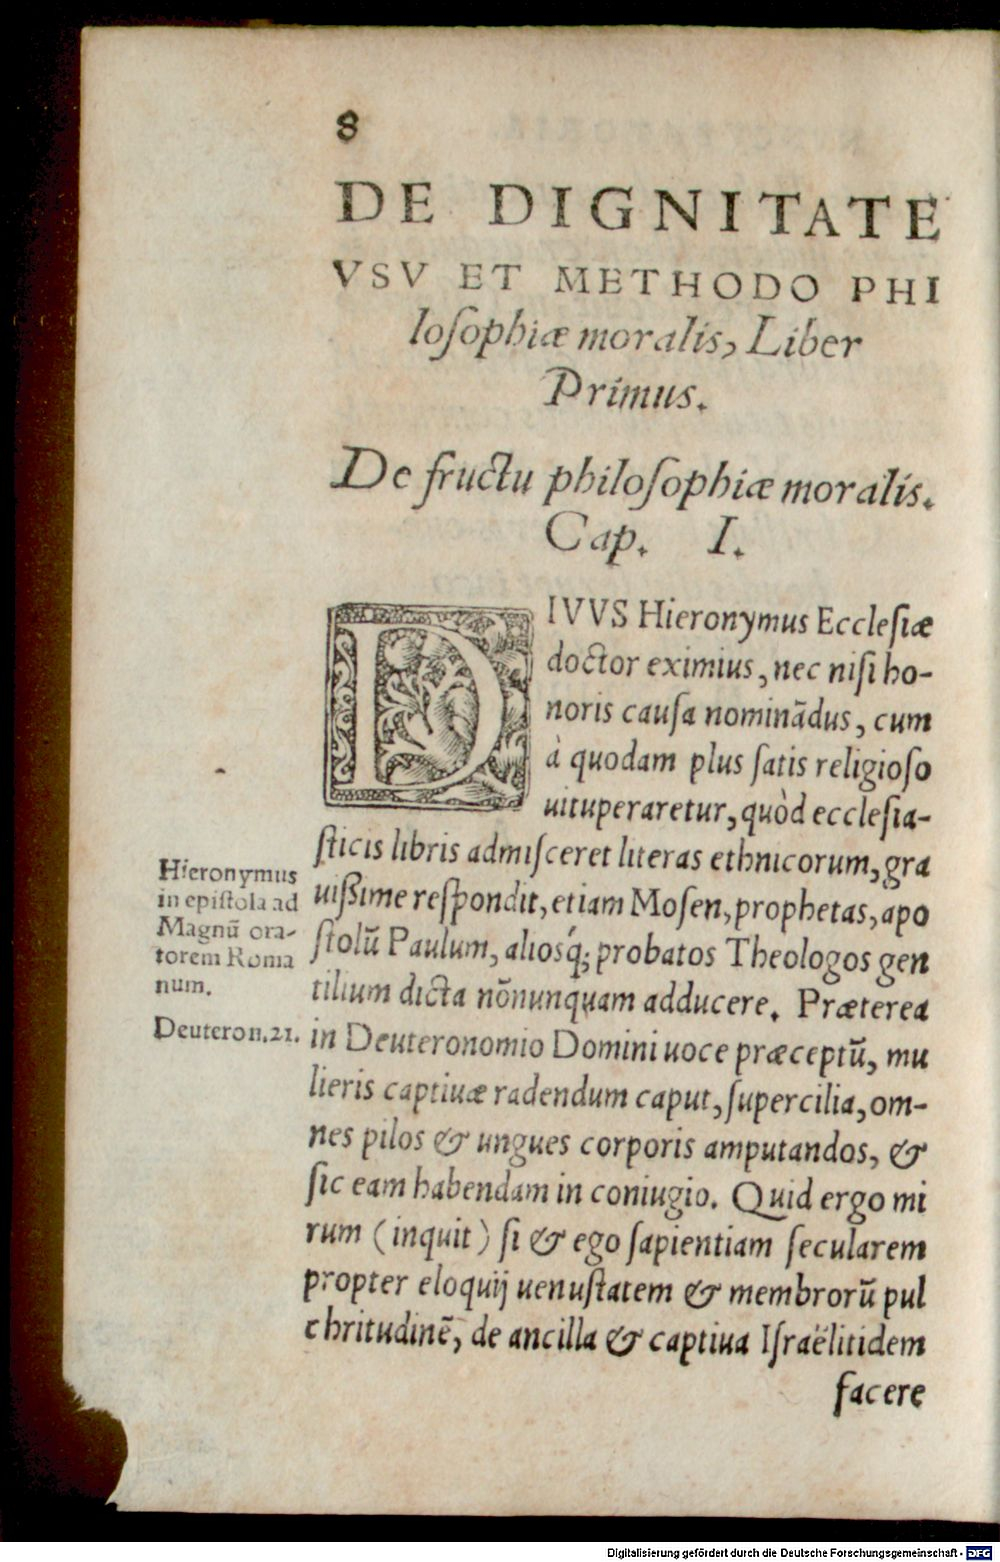 8
DE DIGNITATE
VSV ET METHODO PHI
loſophiæ moralis, Liber
Primus.
De fructu philoſophiæ moralis.
Cap. I.
DIVVS Hieronymus Eccleſiæ
doctor eximius, nec niſi ho-
noris cauſa nominãdus, cum
à quodam plus ſatis religioſo
uituperaretur, quòd eccleſia-
ſticis libris admiſceret literas ethnicorum, gra
uißime reſpondit, etiam Moſen, prophetas, apo
ſtolũ Paulum, aliosq́; probatos Theologos gen
tilium dicta nõnunquam adducere. Præterea
in Deuteronomio Domini uoce præceptũ, mu
lieris captiuæ radendum caput, ſupercilia, om-
nes pilos & ungues corporis amputandos, &
ſic eam habendam in coniugio. Quid ergo mi
rum (inquit) ſi & ego ſapientiam ſecularem
propter eloquij uenuſtatem & membrorũ pul
chritudinẽ, de ancilla & captiua Iſraëlitidem
facere
Hieronymus
in epiſtola ad
Magnũ ora-
torem Roma
num.
Deuteron.21.
Digitalisierung gefördert durch die Deutsche Forschungsgemeinschaft - DFG